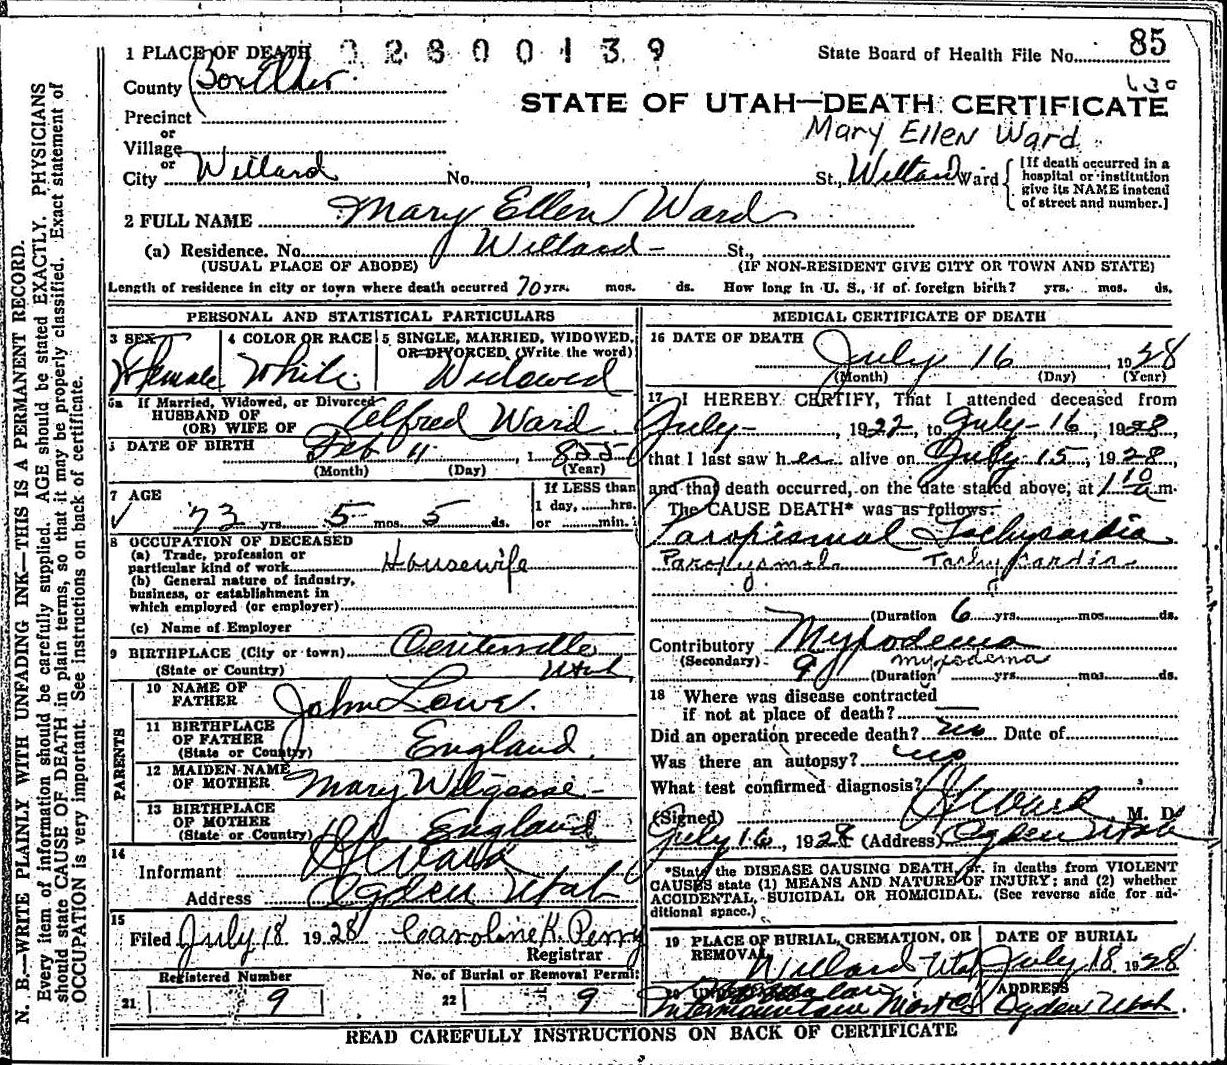 1 PLACE OF DEATH 02800139
State Board of Health File No. 85
County Box Elder
630
STATE OF UTAH—DEATH CERTIFICATE
Precinct
or
Mary Ellen Ward
Village
or
City Willard No. , St., Willard Ward
[If death occurred in a
hospital or institution
give its NAME instead
of street and number.]
2 FULL NAME Mary Ellen Ward
(a) Residence. No. Willard St.,
(USUAL PLACE OF ABODE) (IF NON-RESIDENT GIVE CITY OR TOWN AND STATE)
Length of residence in city or town where death occurred 70 yrs. mos. ds. How long in U. S., if of foreign birth? yrs. mos. ds.
PERSONAL AND STATISTICAL PARTICULARS
3 SEX
Female
4 COLOR OR RACE
White
5 SINGLE, MARRIED, WIDOWED,
OR DIVORCED (Write the word)
Widowed
5a If Married, Widowed, or Divorced
HUSBAND OF
(OR) WIFE OF Alfred Ward
DATE OF BIRTH Feb 11 1855
(Month) (Day) (Year)
7 AGE
73 yrs. 5 mos. 5 ds.
If LESS than
1 day, hrs.
or min.
8 OCCUPATION OF DECEASED
(a) Trade, profession or
particular kind of work Housewife
(b) General nature of industry,
business, or establishment in
which employed (or employer)
(c) Name of Employer
9 BIRTHPLACE (City or town) Centerville
(State or Country) Utah
PARENTS
10 NAME OF
FATHER John Lowe.
11 BIRTHPLACE
OF FATHER
(State or Country) England
12 MAIDEN NAME
OF MOTHER Mary Wilgoose
13 BIRTHPLACE
OF MOTHER
(State or Country) England
14
Informant Ward
Address Ogden Utah
15
Filed July 18 1928 Caroline K. Perry
Registrar
Registered Number
21 9
No. of Burial or Removal Permit
22 9
MEDICAL CERTIFICATE OF DEATH
16 DATE OF DEATH
July 16 1928
(Month) (Day) (Year)
17 I HEREBY CERTIFY, That I attended deceased from
July , 1922, to July 16, 1928,
that I last saw her alive on July 15, 1928,
and that death occurred, on the date stated above, at 1 10 a m.
The CAUSE DEATH* was as follows:
Paropismal Tachycardia
Paroxysmal Tachycardia
(Duration 6 yrs. mos. ds.
Contributory Myxodema
(Secondary) 9 myxodema
(Duration yrs. mos. ds.
18 Where was disease contracted
if not at place of death?
Did an operation precede death? no Date of
Was there an autopsy? no
What test confirmed diagnosis?
(Signed) Ward M. D.
July 16, 1928 (Address) Ogden Utah
*State the DISEASE CAUSING DEATH, or, in deaths from VIOLENT
CAUSES state (1) MEANS AND NATURE OF INJURY; and (2) whether
ACCIDENTAL, SUICIDAL OR HOMICIDAL. (See reverse side for ad-
ditional space.)
19 PLACE OF BURIAL, CREMATION, OR
REMOVAL
Willard Utah
DATE OF BURIAL
July 18 1928
20
Intermountain
ADDRESS
Ogden Utah.
READ CAREFULLY INSTRUCTIONS ON BACK OF CERTIFICATE
N. B.—WRITE PLAINLY WITH UNFADING INK—THIS IS A PERMANENT RECORD.
Every item of information should be carefully supplied. AGE should be stated EXACTLY. PHYSICIANS
should state CAUSE OF DEATH in plain terms, so that it may be properly classified. Exact statement of
OCCUPATION is very important. See instructions on back of certificate.